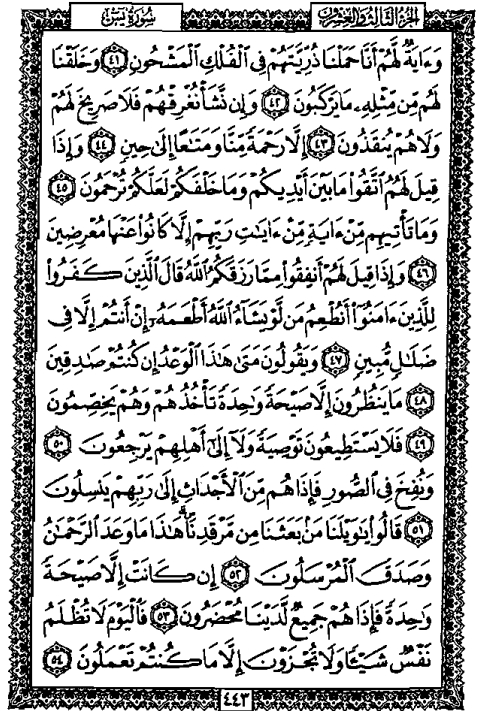 الجزء الثالث والعشرون
سورة يس
وَءَايَةٌ لَّهُمْ أَنَّا حَمَلْنَا ذُرِّيَّتَهُمْ فِي ٱلْفُلْكِ ٱلْمَشْحُونِ ٤١ وَخَلَقْنَا
لَهُم مِّن مِّثْلِهِۦ مَا يَرْكَبُونَ ٤٢ وَإِن نَّشَأْ نُغْرِقْهُمْ فَلَا صَرِيخَ لَهُمْ
وَلَا هُمْ يُنقَذُونَ ٤٣ إِلَّا رَحْمَةً مِّنَّا وَمَتَٰعًا إِلَىٰ حِينٍ ٤٤ وَإِذَا
قِيلَ لَهُمُ ٱتَّقُوا۟ مَا بَيْنَ أَيْدِيكُمْ وَمَا خَلْفَكُمْ لَعَلَّكُمْ تُرْحَمُونَ ٤٥
وَمَا تَأْتِيهِم مِّنْ ءَايَةٍ مِّنْ ءَايَٰتِ رَبِّهِمْ إِلَّا كَانُوا۟ عَنْهَا مُعْرِضِينَ
٤٦ وَإِذَا قِيلَ لَهُمْ أَنفِقُوا۟ مِمَّا رَزَقَكُمُ ٱللَّهُ قَالَ ٱلَّذِينَ كَفَرُوا۟
لِلَّذِينَ ءَامَنُوٓا۟ أَنُطْعِمُ مَن لَّوْ يَشَآءُ ٱللَّهُ أَطْعَمَهُۥٓ إِنْ أَنتُمْ إِلَّا فِي
ضَلَٰلٍ مُّبِينٍ ٤٧ وَيَقُولُونَ مَتَىٰ هَٰذَا ٱلْوَعْدُ إِن كُنتُمْ صَٰدِقِينَ
٤٨ مَا يَنظُرُونَ إِلَّا صَيْحَةً وَٰحِدَةً تَأْخُذُهُمْ وَهُمْ يَخِصِّمُونَ
٤٩ فَلَا يَسْتَطِيعُونَ تَوْصِيَةً وَلَآ إِلَىٰٓ أَهْلِهِمْ يَرْجِعُونَ ٥٠
وَنُفِخَ فِي ٱلصُّورِ فَإِذَا هُم مِّنَ ٱلْأَجْدَاثِ إِلَىٰ رَبِّهِمْ يَنسِلُونَ
٥١ قَالُوا۟ يَٰوَيْلَنَا مَنۢ بَعَثَنَا مِن مَّرْقَدِنَا ۗ هَٰذَا مَا وَعَدَ ٱلرَّحْمَٰنُ
وَصَدَقَ ٱلْمُرْسَلُونَ ٥٢ إِن كَانَتْ إِلَّا صَيْحَةً
وَٰحِدَةً فَإِذَا هُمْ جَمِيعٌ لَّدَيْنَا مُحْضَرُونَ ٥٣ فَٱلْيَوْمَ لَا تُظْلَمُ
نَفْسٌ شَيْـًٔا وَلَا تُجْزَوْنَ إِلَّا مَا كُنتُمْ تَعْمَلُونَ ٥٤
٤٤٣